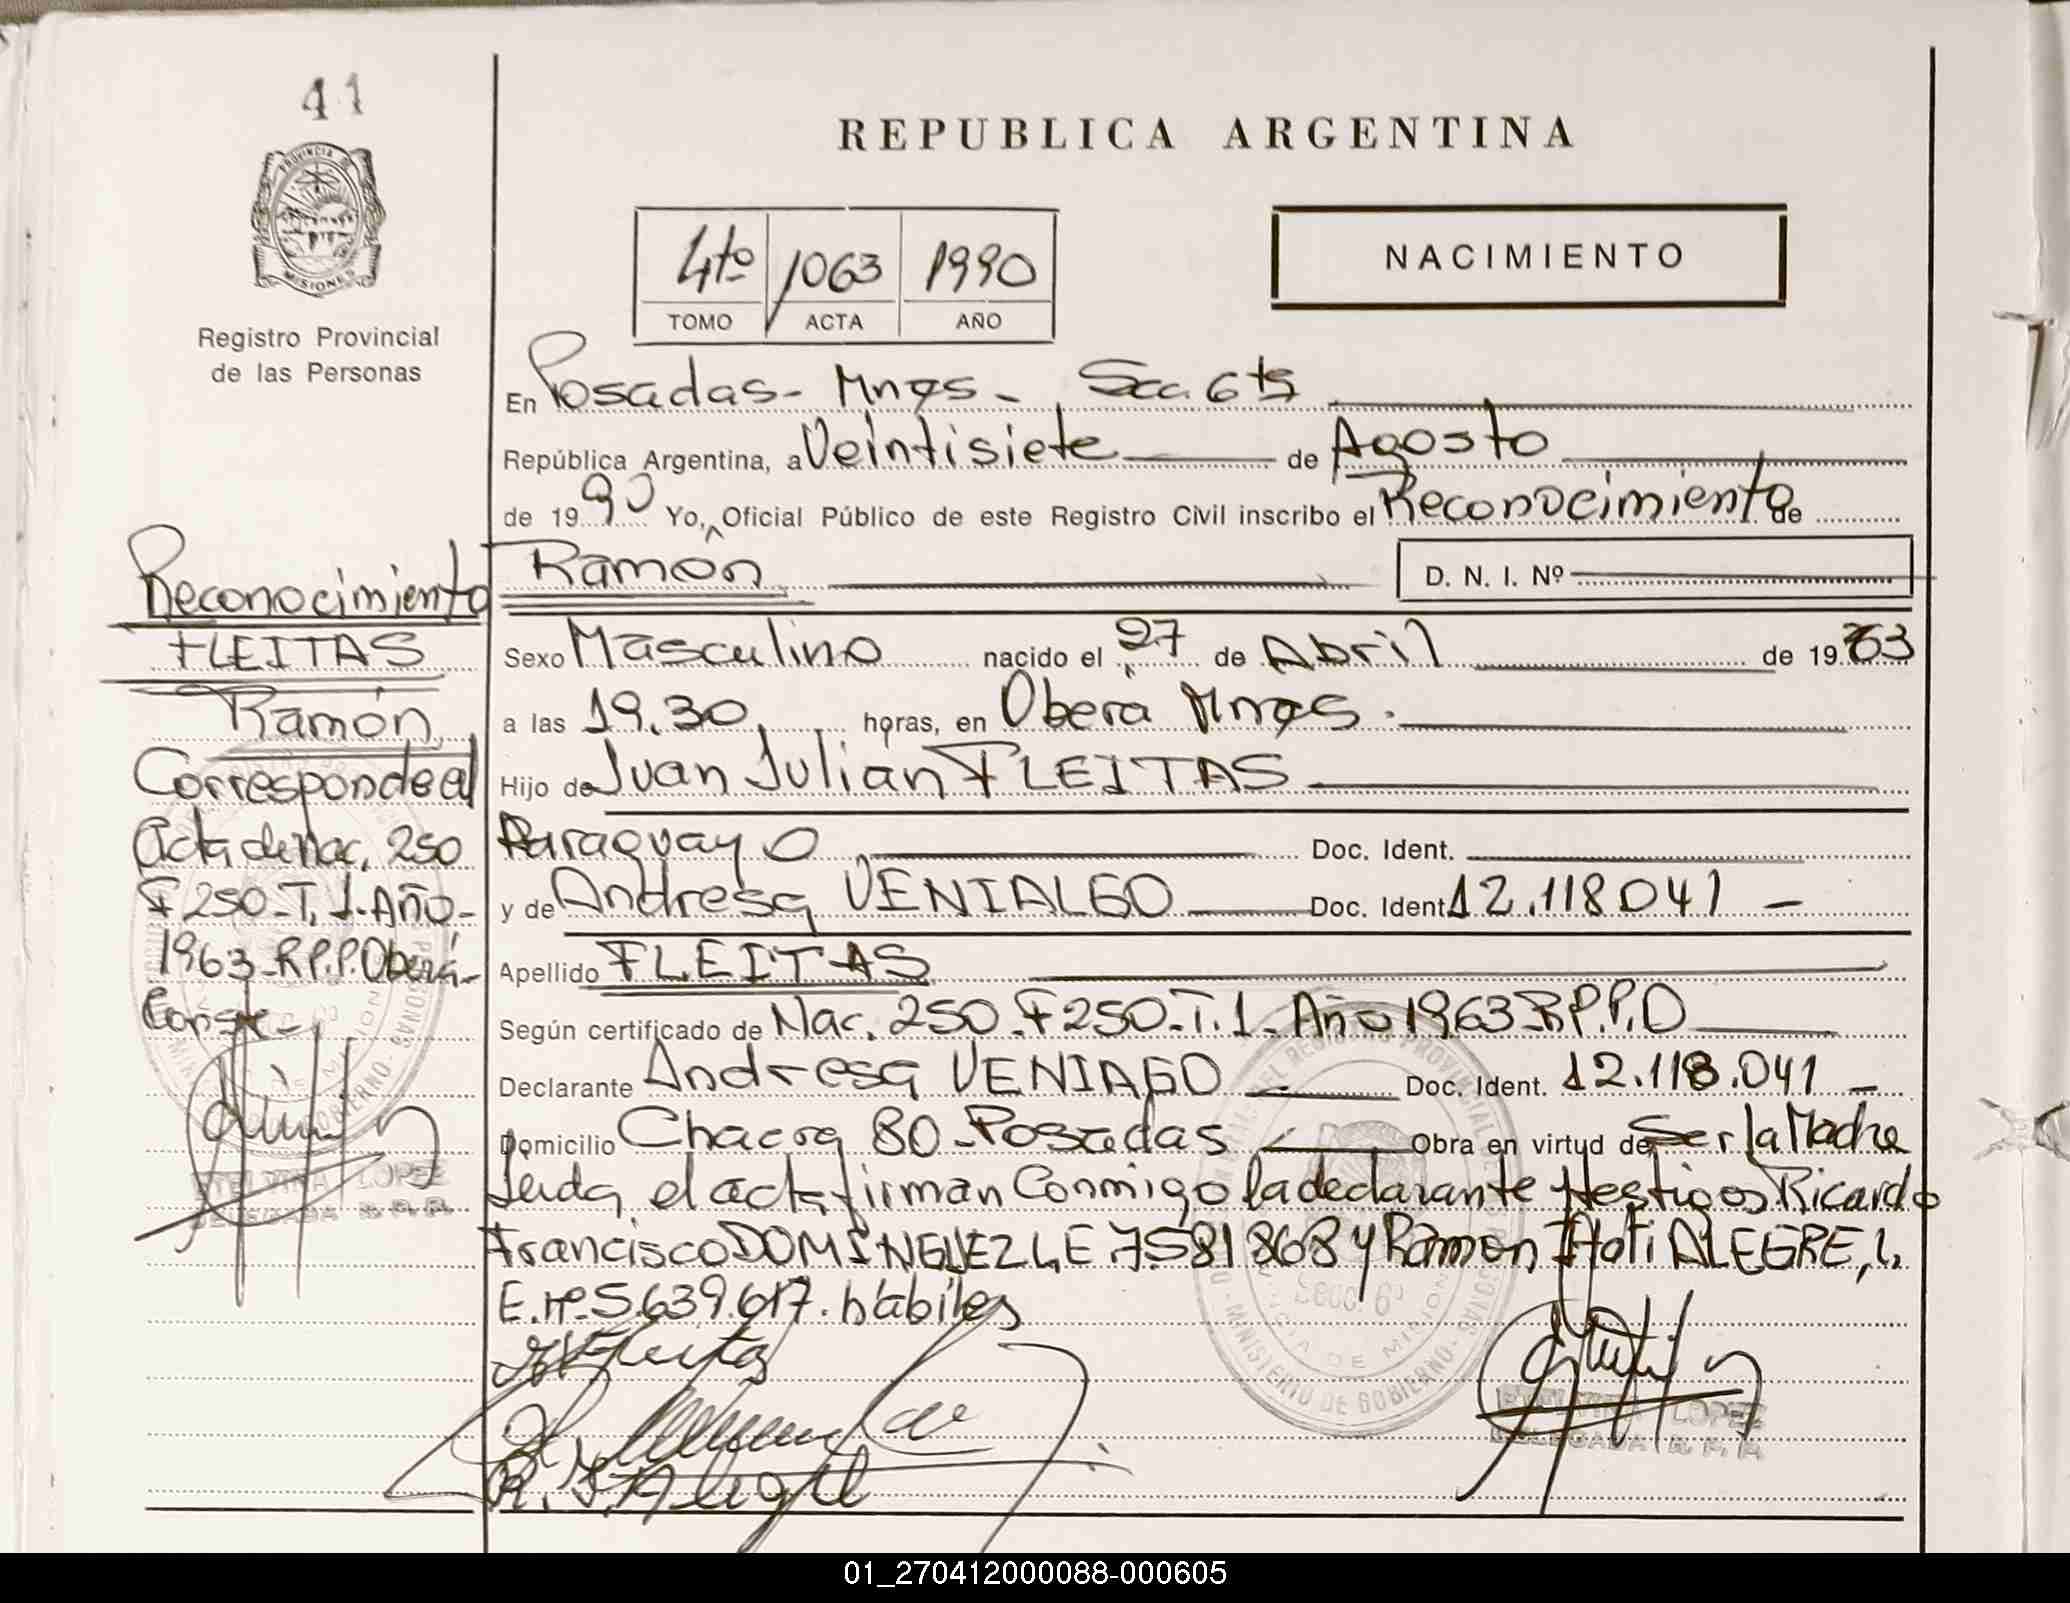 41
PROVINCIA DE
MISIONES
Registro Provincial
de las Personas
REPUBLICA ARGENTINA
4to 1063 1990
TOMO ACTA AÑO
NACIMIENTO
En Posadas - Mnes - Scc. 6ta
República Argentina, a Veintisiete de Agosto
de 1990 Yo, Oficial Público de este Registro Civil inscribo el Reconocimiento de
Ramón D. N. I. Nº
Sexo Masculino nacido el 27 de Abril de 1963
a las 19.30 horas, en Oberá Mnes.
Hijo de Juan Julian FLEITAS
Paraguayo Doc. Ident.
y de Andresa VENIALGO Doc. Ident. 12.118041 -
Apellido FLEITAS
Según certificado de Nac. 250 - F 250 - T. 1 - Año 1963 R.P.P.O
Declarante Andresa VENIAGO Doc. Ident. 12.118.041 -
Domicilio Chacra 80 - Posadas Obra en virtud de Ser la Madre
Leida el acta firman Conmigo la declarante y testigos Ricardo
Francisco DOMINGUEZ L E 7581868 y Ramon ALEGRE, L.
E. nº 5.639.617. habiles
Reconocimiento
FLEITAS
Ramón
Corresponde al
Acta de Nac. 250
F 250 - T. 1 - Año -
1963 - R.P.P. Oberá -
Conste -
ETELVINA LOPEZ
DELEGADA R. P. P.
Secc. 6ª
MINISTERIO DE GOBIERNO
PROVINCIA DE MISIONES
ETELVINA LOPEZ
DELEGADA R. P. P.
R. I. Alegre
01_270412000088-000605